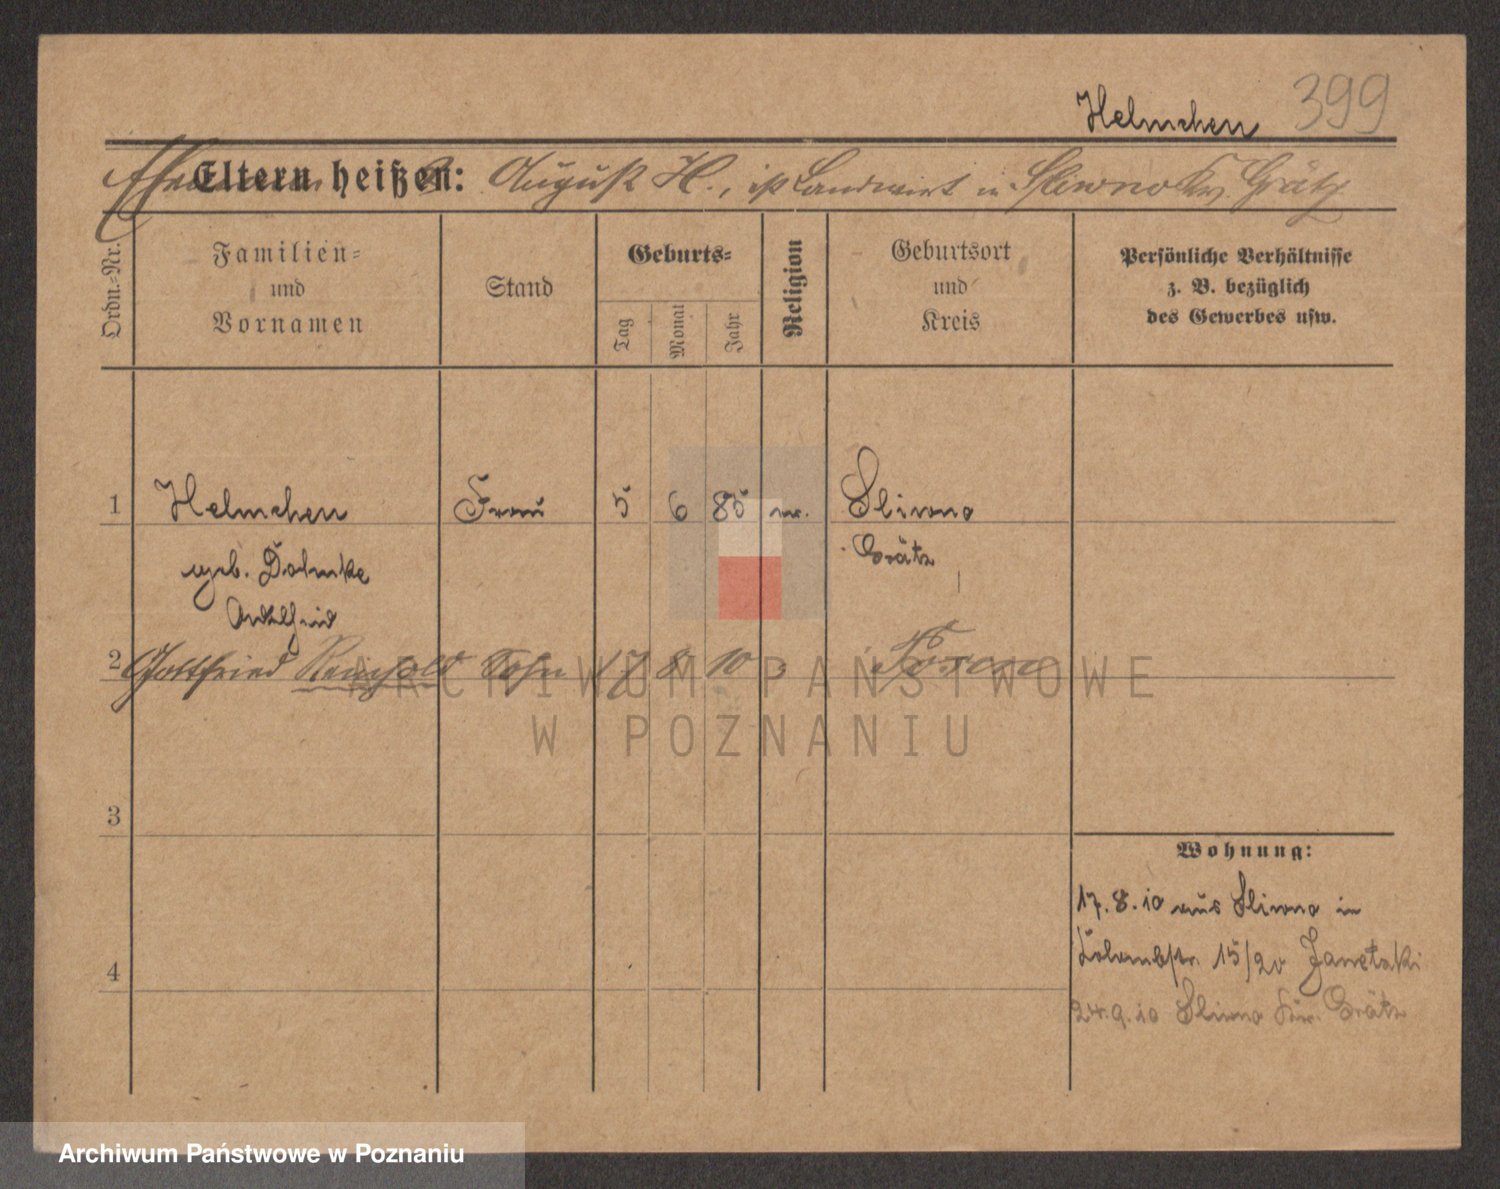 Helmchen 399
Ehemann Eltern heißen: August H., ist Landwirt in Sliwno Kr. Grätz
Ordn.-Nr.
Familien- und Vornamen
Stand
Geburts-
Tag
Monat
Jahr
Religion
Geburtsort und Kreis
Persönliche Verhältnisse
z. B. bezüglich
des Gewerbes usw.
1 Helmchen Frau 5 6 85 ev. Sliwno
geb. Grätz
2 Gottfried Reinhold Sohn 17 8 10 Posen
3
Wohnung:
17.8.10 aus Sliwno in
4 15/20
24.9.10 Sliwno Kr. Grätz
ARCHIWUM PAŃSTWOWE
W POZNANIU
Archiwum Państwowe w Poznaniu